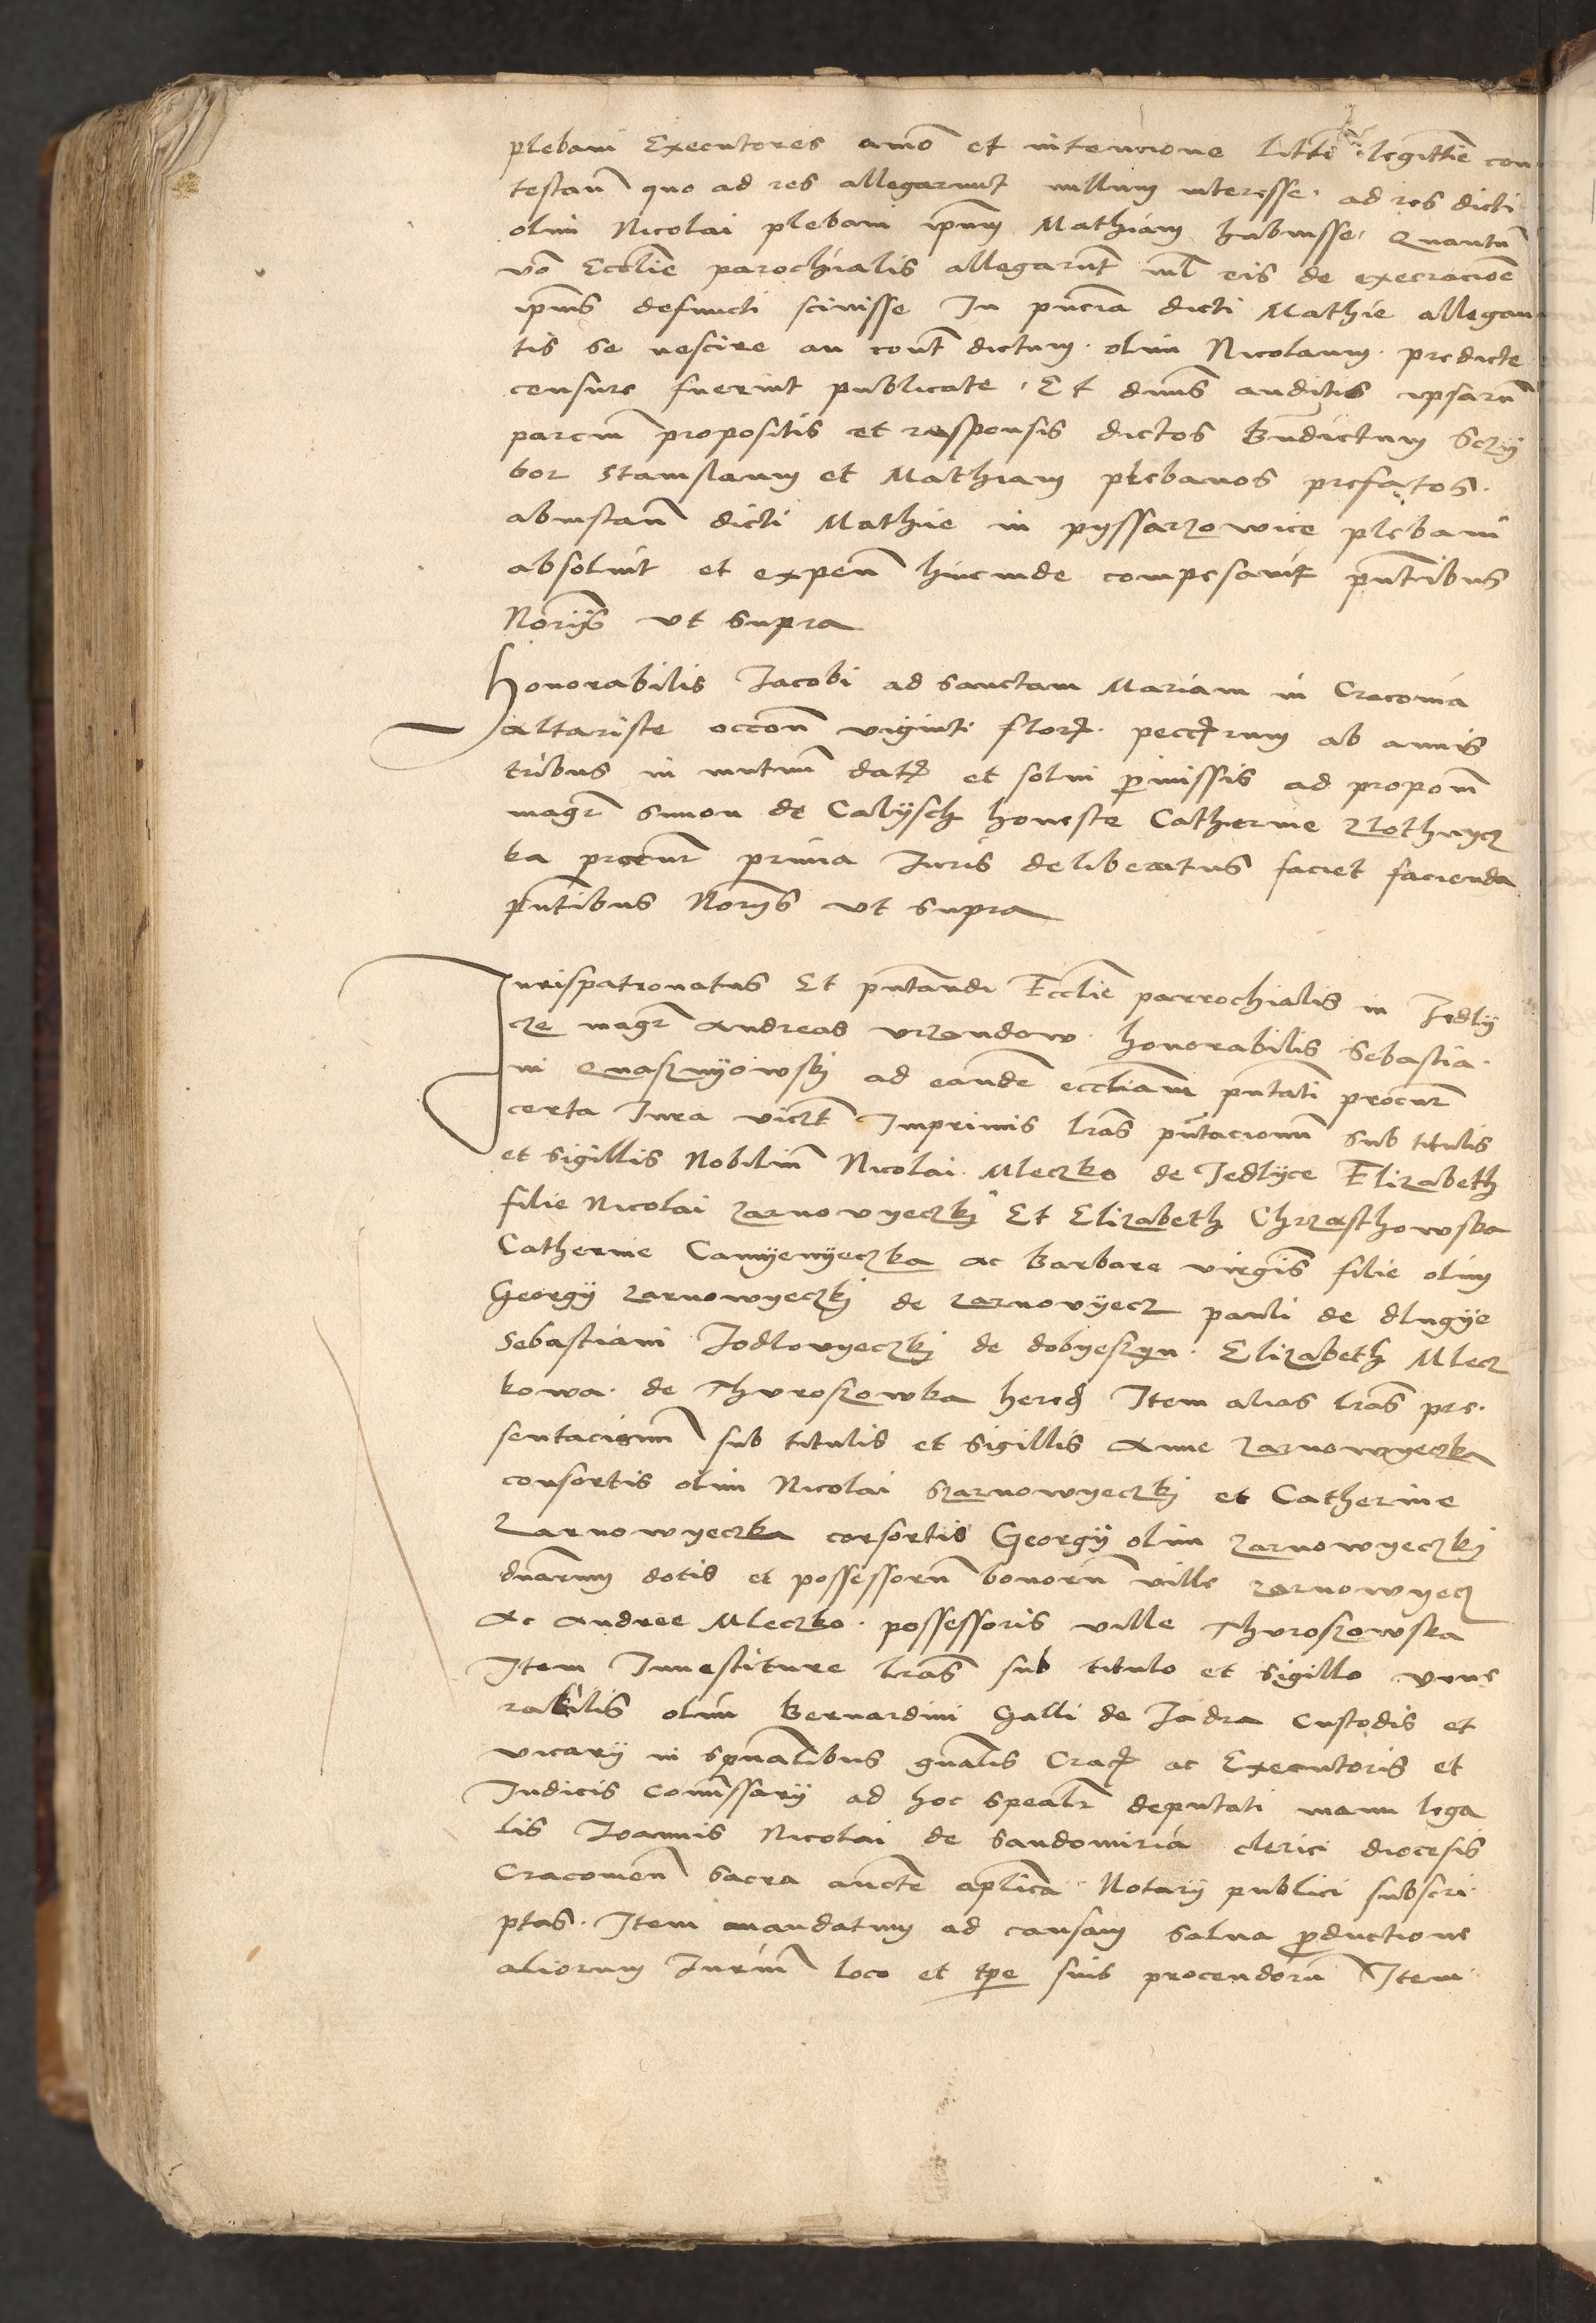 plebani Executores amo et intencione Litti legittie con
testan quo ad res allegarunt nullum interesse. ad res dicti
olim Nicolai plebani ipum Mathiam habuisse. Quantu
vo Ecclie parochialis allegarut nil eis de execracioe
ipius defuncti scivisse In pncia dicti Mathie allegan
tis se nescire an cont dictum. olim Nicolaum. predicte
censure fuerint publicate. Et dnus auditis ipsaru
parcium propositis et responsis dictos Bndictum Sczy
bor Stanislaum et Mathiam plebanos prefatos.
abinstan dicti Mathie in pyssarzowice plebani
absolvit et expen hincinde compesavit pntibus
Norijs vt supra
Honorabilis Jacobi ad sanctam Mariam in Cracovia
altariste occon viginti flor. pecc rum ab annis
tribus in mutuu dat et solvi pmissis ad propom
magr Simon de Calysch honeste Catherine Zlothnycz
ka procur prima Juris deliberatus faciet facienda
pntibus Norijs vt supra
Jurispatronatus Et pntandi Ecclie parrochialis in Jedly
cze magr Andreas vrzandow. honorabilis Sebastia.
ni Quasznyowskj ad eande eccliam pntati procur
certa Jura viczt Imprimis lras pntacionu sub titulis
et sigillis Nobiliu Nicolai Mleczko de Jedlycze Elizabeth
filie Nicolai zarnovyeczkj Et Elizabeth Chrzasthowska
Catherine Camyenyeczka ac Barbare virgis filie olim
Georgij zarnowyeczkj de zarnovyecz pauli de dlugye
Sebastiani Jodlovyeczkj de dobyeszyn. Elizabeth Mlecz
kowa. de Thuroszowka hered Item alias lras pre.
sentacionu sub titulis et sigillis Anne zarnowyeczka
consortis olim Nicolai Szarnowyeczkj et Catherine
zarnowyeczka consortis Georgij olim zarnowyeczkj
dnarum dotis et possessoru bonoru ville zarnowyecz
Ac Andree Mleczko. possessoris ville Thuroszowska
Item Investiture lras sub titulo et sigillo vene
rabilis olim Bernardini Galli de Jadra Custodis et
vicarij in spualibus gnalis Crac ac Executoris et
Judicis Comissarij ad hoc spealr deputati manu lega
lis Joannis Nicolai de Sandomiria clerici diocesis
Cracovien Sacra aucte aplica Notarij publici subscri
ptas. Item mandatum ad causam salva pductione
aliorum Juriu loco et tpe suis procendoru Item